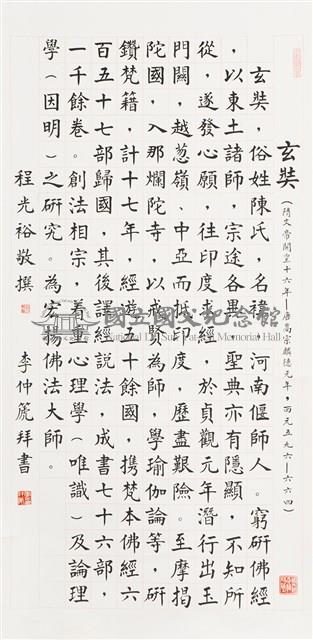 玄奘(隋文帝開皇十六年—唐高宗麟德元年,西元五九六—六六四)
玄奘,俗姓陳氏,名禕,河南偃師人。窮研佛經
,以東土諸師,宗途各異,聖典亦有隱顯,不知所
從,遂發心願,往印度求經,於貞觀元年潛行出玉
門關,越蔥嶺、中亞而抵印度,歷盡艱險。至摩揭
陀國,入那爛陀寺,以戒賢為師,學瑜伽論等,研
鑽梵籍,計十七年,經遊五十餘國,攜梵本佛經六
百五十七部歸國,其後譯經說法,成書七十六部,
一千餘卷。創法相宗,着重心理學(唯識)及論理
學(因明)之研究。為宏揚佛法大師。
程光裕敬撰 李仲篪拜書
國立國父紀念館
National Dr. Sun Yat-sen Memorial Hall